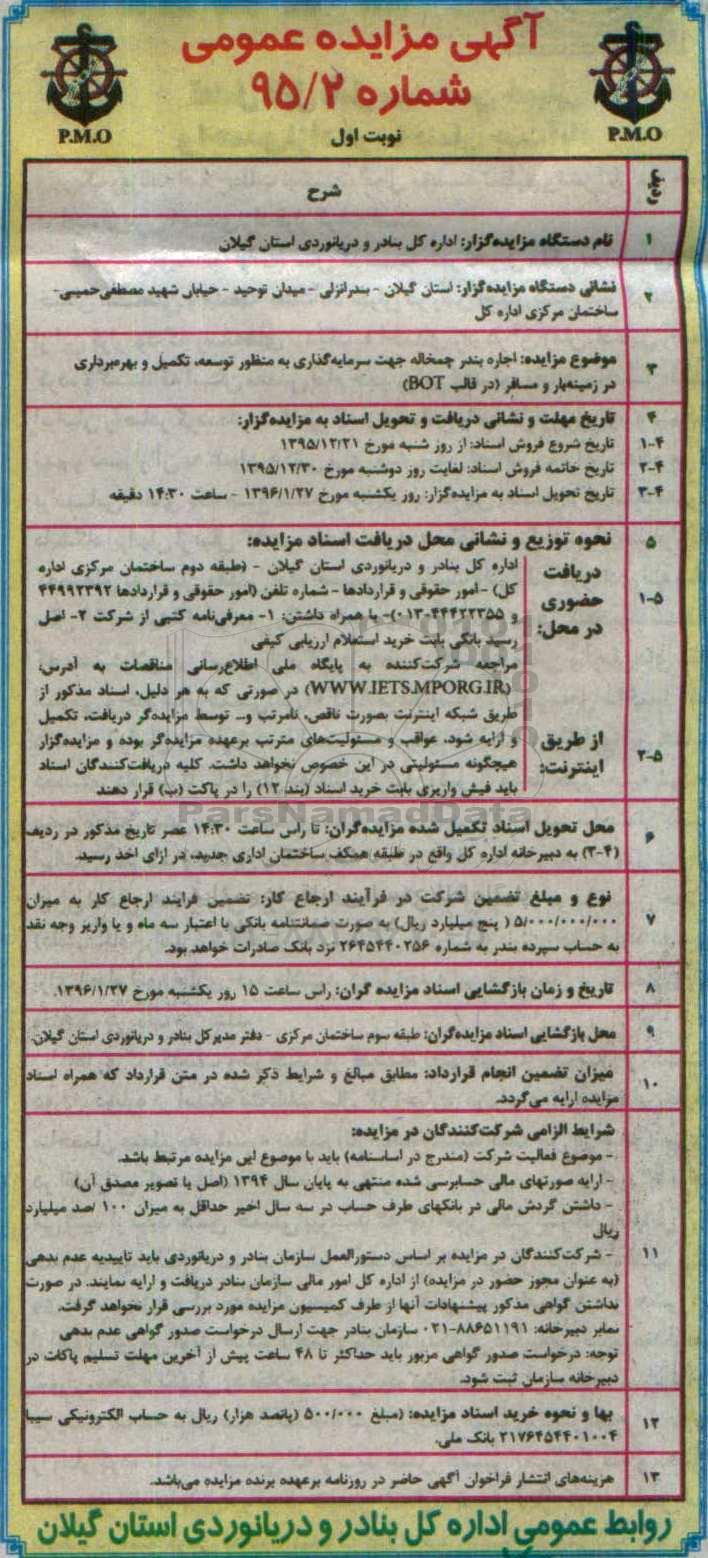 آگهی مزایده عمومی
شماره ۹۵/۲
نوبت اول
P.M.O
P.M.O
ردیف
شرح
۱
نام دستگاه مزایده‌گزار: اداره کل بنادر و دریانوردی استان گیلان
۲
نشانی دستگاه مزایده‌گزار: استان گیلان - بندرانزلی - میدان توحید - خیابان شهید مصطفی خمینی-
ساختمان مرکزی اداره کل
۳
موضوع مزایده: اجاره بندر چمخاله جهت سرمایه‌گذاری به منظور توسعه، تکمیل و بهره‌برداری
در زمینه‌بار و مسافر (در قالب BOT)
۴
تاریخ مهلت و نشانی دریافت و تحویل اسناد به مزایده‌گزار:
۴-۱
تاریخ شروع فروش اسناد: از روز شنبه مورخ ۱۳۹۵/۱۲/۲۱
۴-۲
تاریخ خاتمه فروش اسناد: لغایت روز دوشنبه مورخ ۱۳۹۵/۱۲/۳۰
۴-۳
تاریخ تحویل اسناد به مزایده‌گزار: روز یکشنبه مورخ ۱۳۹۶/۱/۲۷ - ساعت ۱۴:۳۰ دقیقه
۵
نحوه توزیع و نشانی محل دریافت اسناد مزایده:
۵-۱
دریافت
حضوری
در محل:
اداره کل بنادر و دریانوردی استان گیلان - (طبقه دوم ساختمان مرکزی اداره
کل) -امور حقوقی و قراردادها - شماره تلفن (امور حقوقی و قراردادها ۴۴۹۹۲۳۹۲
و ۴۴۴۲۲۳۵۵-۰۱۳)- با همراه داشتن: ۱- معرفی‌نامه کتبی از شرکت ۲- اصل
رسید بانکی بابت خرید استعلام ارزیابی کیفی
۵-۲
از طریق
اینترنت:
مراجعه شرکت‌کننده به پایگاه ملی اطلاع‌رسانی مناقصات به آدرس:
(WWW.IETS.MPORG.IR) در صورتی که به هر دلیل، اسناد مذکور از
طریق شبکه اینترنت بصورت ناقص، نامرتب و... توسط مزایده‌گر دریافت، تکمیل
و ارایه شود، عواقب و مسئولیت‌های مترتب برعهده مزایده‌گر بوده و مزایده‌گزار
هیچگونه مسئولیتی در این خصوص نخواهد داشت. کلیه دریافت‌کنندگان اسناد
باید فیش واریزی بابت خرید اسناد (بند ۱۲) را در پاکت (ب) قرار دهند
ParsNamadData
۶
محل تحویل اسناد تکمیل شده مزایده‌گران: تا راس ساعت ۱۴:۳۰ عصر تاریخ مذکور در ردیف
(۴-۳) به دبیرخانه اداره کل واقع در طبقه همکف ساختمان اداری جدید، در ازای اخذ رسید.
۷
نوع و مبلغ تضمین شرکت در فرآیند ارجاع کار: تضمین فرایند ارجاع کار به میزان
۵/۰۰۰/۰۰۰/۰۰۰ ( پنج میلیارد ریال) به صورت ضمانتنامه بانکی با اعتبار سه ماه و یا واریز وجه نقد
به حساب سپرده بندر به شماره ۲۶۴۵۴۴۰۲۵۶ نزد بانک صادرات خواهد بود.
۸
تاریخ و زمان بازگشایی اسناد مزایده گران: راس ساعت ۱۵ روز یکشنبه مورخ ۱۳۹۶/۱/۲۷.
۹
محل بازگشایی اسناد مزایده‌گران: طبقه سوم ساختمان مرکزی - دفتر مدیرکل بنادر و دریانوردی استان گیلان.
۱۰
میزان تضمین انجام قرارداد: مطابق مبالغ و شرایط ذکر شده در متن قرارداد که همراه اسناد
مزایده ارایه می‌گردد.
۱۱
شرایط الزامی شرکت‌کنندگان در مزایده:
- موضوع فعالیت شرکت (مندرج در اساسنامه) باید با موضوع این مزایده مرتبط باشد.
- ارایه صورتهای مالی حسابرسی شده منتهی به پایان سال ۱۳۹۴ (اصل یا تصویر مصدق آن)
- داشتن گردش مالی در بانکهای طرف حساب در سه سال اخیر حداقل به میزان ۱۰۰ /صد میلیارد
ریال
- شرکت‌کنندگان در مزایده بر اساس دستورالعمل سازمان بنادر و دریانوردی باید تاییدیه عدم بدهی
(به عنوان مجوز حضور در مزایده) از اداره کل امور مالی سازمان بنادر دریافت و ارایه نمایند. در صورت
نداشتن گواهی مذکور پیشنهادات آنها از طرف کمیسیون مزایده مورد بررسی قرار نخواهد گرفت.
نمابر دبیرخانه: ۸۸۶۵۱۱۹۱-۰۲۱ سازمان بنادر جهت ارسال درخواست صدور گواهی عدم بدهی
توجه: درخواست صدور گواهی مزبور باید حداکثر تا ۴۸ ساعت پیش از آخرین مهلت تسلیم پاکات در
دبیرخانه سازمان ثبت شود.
۱۲
بها و نحوه خرید اسناد مزایده: (مبلغ ۵۰۰/۰۰۰ (پانصد هزار) ریال به حساب الکترونیکی سیبا
۲۱۷۶۴۵۴۴۰۱۰۰۴ بانک ملی.
۱۳
هزینه‌های انتشار فراخوان آگهی حاضر در روزنامه برعهده برنده مزایده می‌باشد.
روابط عمومی اداره کل بنادر و دریانوردی استان گیلان